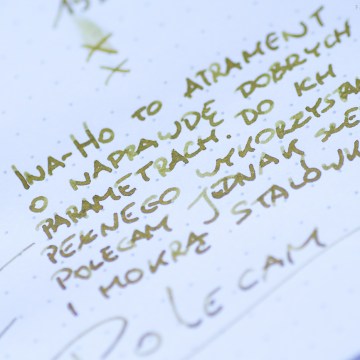 INA-HO TO ATRAMENT
O NAPRAWDĘ DOBRYCH
PARAMETRACH. DO ICH
PEŁNEGO WYKORZYSTA
POLECAM JEDNAK SZE
I MOKRĄ STALÓWK
POLECAM